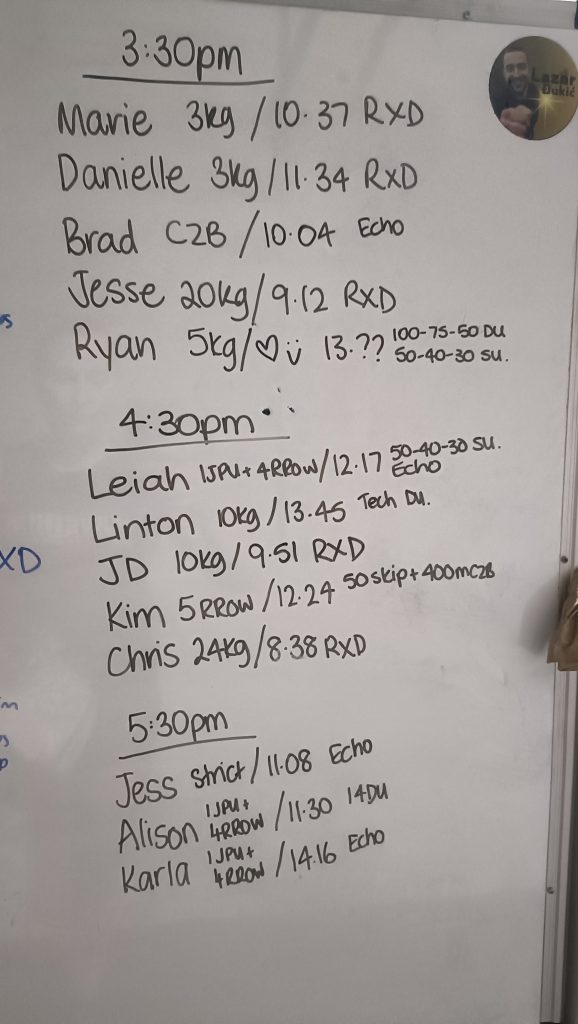 3:30pm
Lazar
Đukić
Marie 3kg / 10.37 RXD
Danielle 3kg / 11.34 RXD
Brad C2B / 10.04 Echo
Jesse 20kg / 9.12 RXD
Ryan 5kg / ♡ü 13.?? 100-75-50 DU
50-40-30 SU.
4:30pm
Leiah 1JPU+ 4RROW / 12.17 50-40-30 SU.
Echo
Linton 10kg / 13.45 Tech DU.
JD 10kg / 9.51 RXD
Kim 5RROW / 12.24 50skip+400mC2B
Chris 24kg / 8.38 RXD
5:30pm
Jess Strict / 11.08 Echo
Alison 1JPU+
4RROW / 11.30 14DU
Karla 1JPU+
4RROW / 14.16 Echo
XD